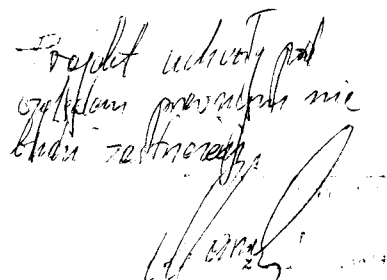 Projekt uchwały pod
względem prawnym nie
budzi zastrzeżeń